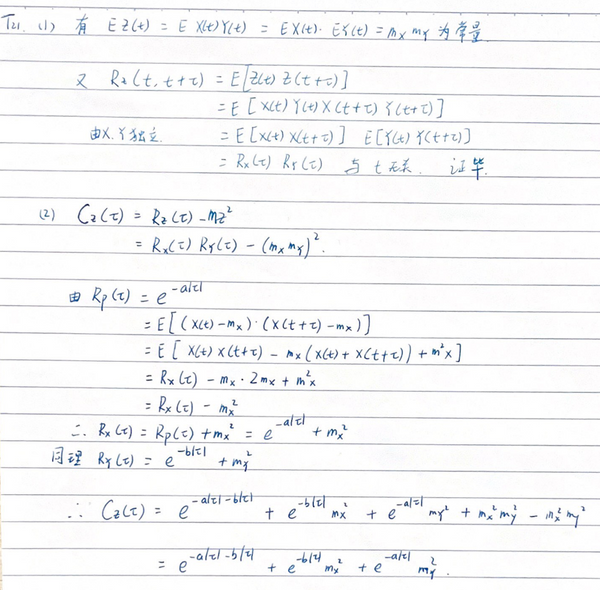 T21. (1) 有 EZ(t) = E X(t)Y(t) = EX(t)· EY(t) = mx my 为常量
又 Rz(t, t+τ) = E[Z(t) Z(t+τ)]
= E [X(t) Y(t) X(t+τ) Y(t+τ)]
由X.Y独立. = E[X(t) X(t+τ)] E[Y(t) Y(t+τ)]
= Rx(τ) RY(τ) 与 t 无关. 证毕.
(2) Cz(τ) = Rz(τ) - mz²
= Rx(τ) RY(τ) - (mx mY)².
由 Rp(τ) = e^{-a|τ|}
= E[(X(t) - mx)·(X(t+τ) - mx)]
= E[ X(t) X(t+τ) - mx(X(t) + X(t+τ)) + m²x]
= Rx(τ) - mx · 2mx + m²x
= Rx(τ) - mx²
∴ Rx(τ) = Rp(τ) + mx² = e^{-a|τ|} + mx²
同理 RY(τ) = e^{-b|τ|} + mY²
∴ Cz(τ) = e^{-a|τ| - b|τ|} + e^{-b|τ|} mx² + e^{-a|τ|} mY² + mx² mY² - mx² mY²
= e^{-a|τ| - b|τ|} + e^{-b|τ|} mx² + e^{-a|τ|} mY².